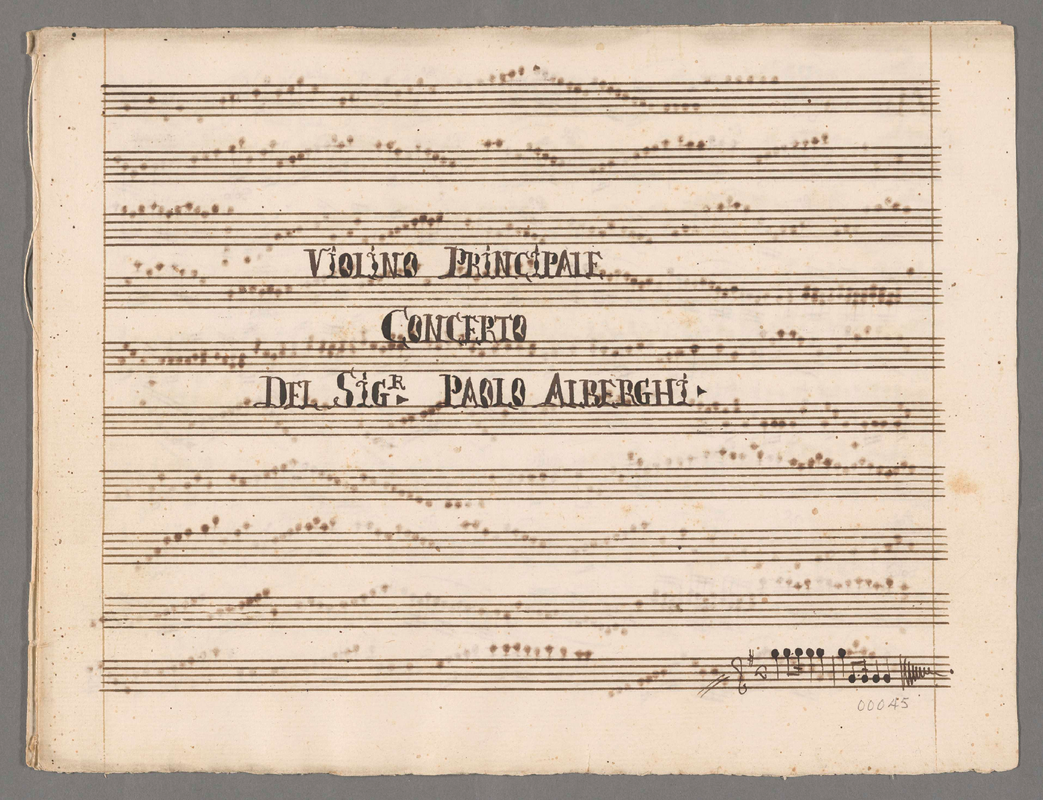 VIOLINO PRINCIPALE
CONCERTO
DEL SIG.R PAOLO ALBERGHI.
00045